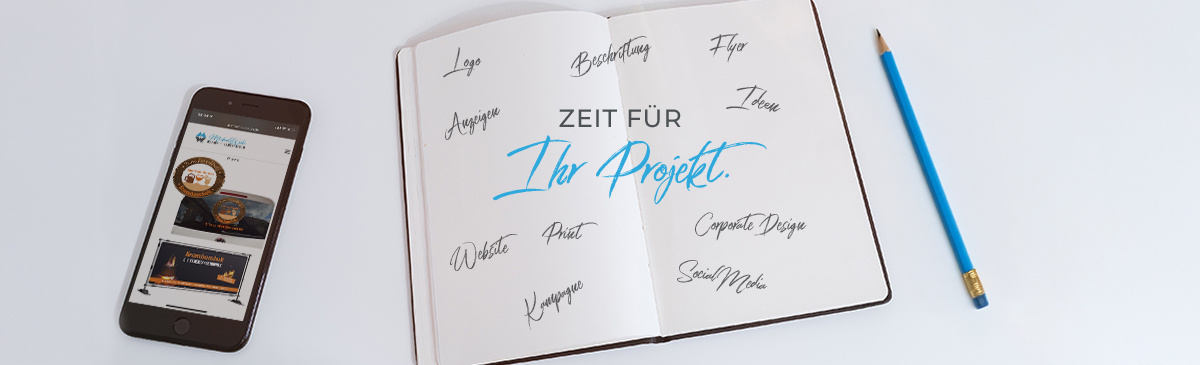 Logo
Beschriftung
Flyer
Anzeigen
Ideen
ZEIT FÜR
Ihr Projekt.
Website
Print
Corporate Design
Kampagne
Social Media
Krambambuli